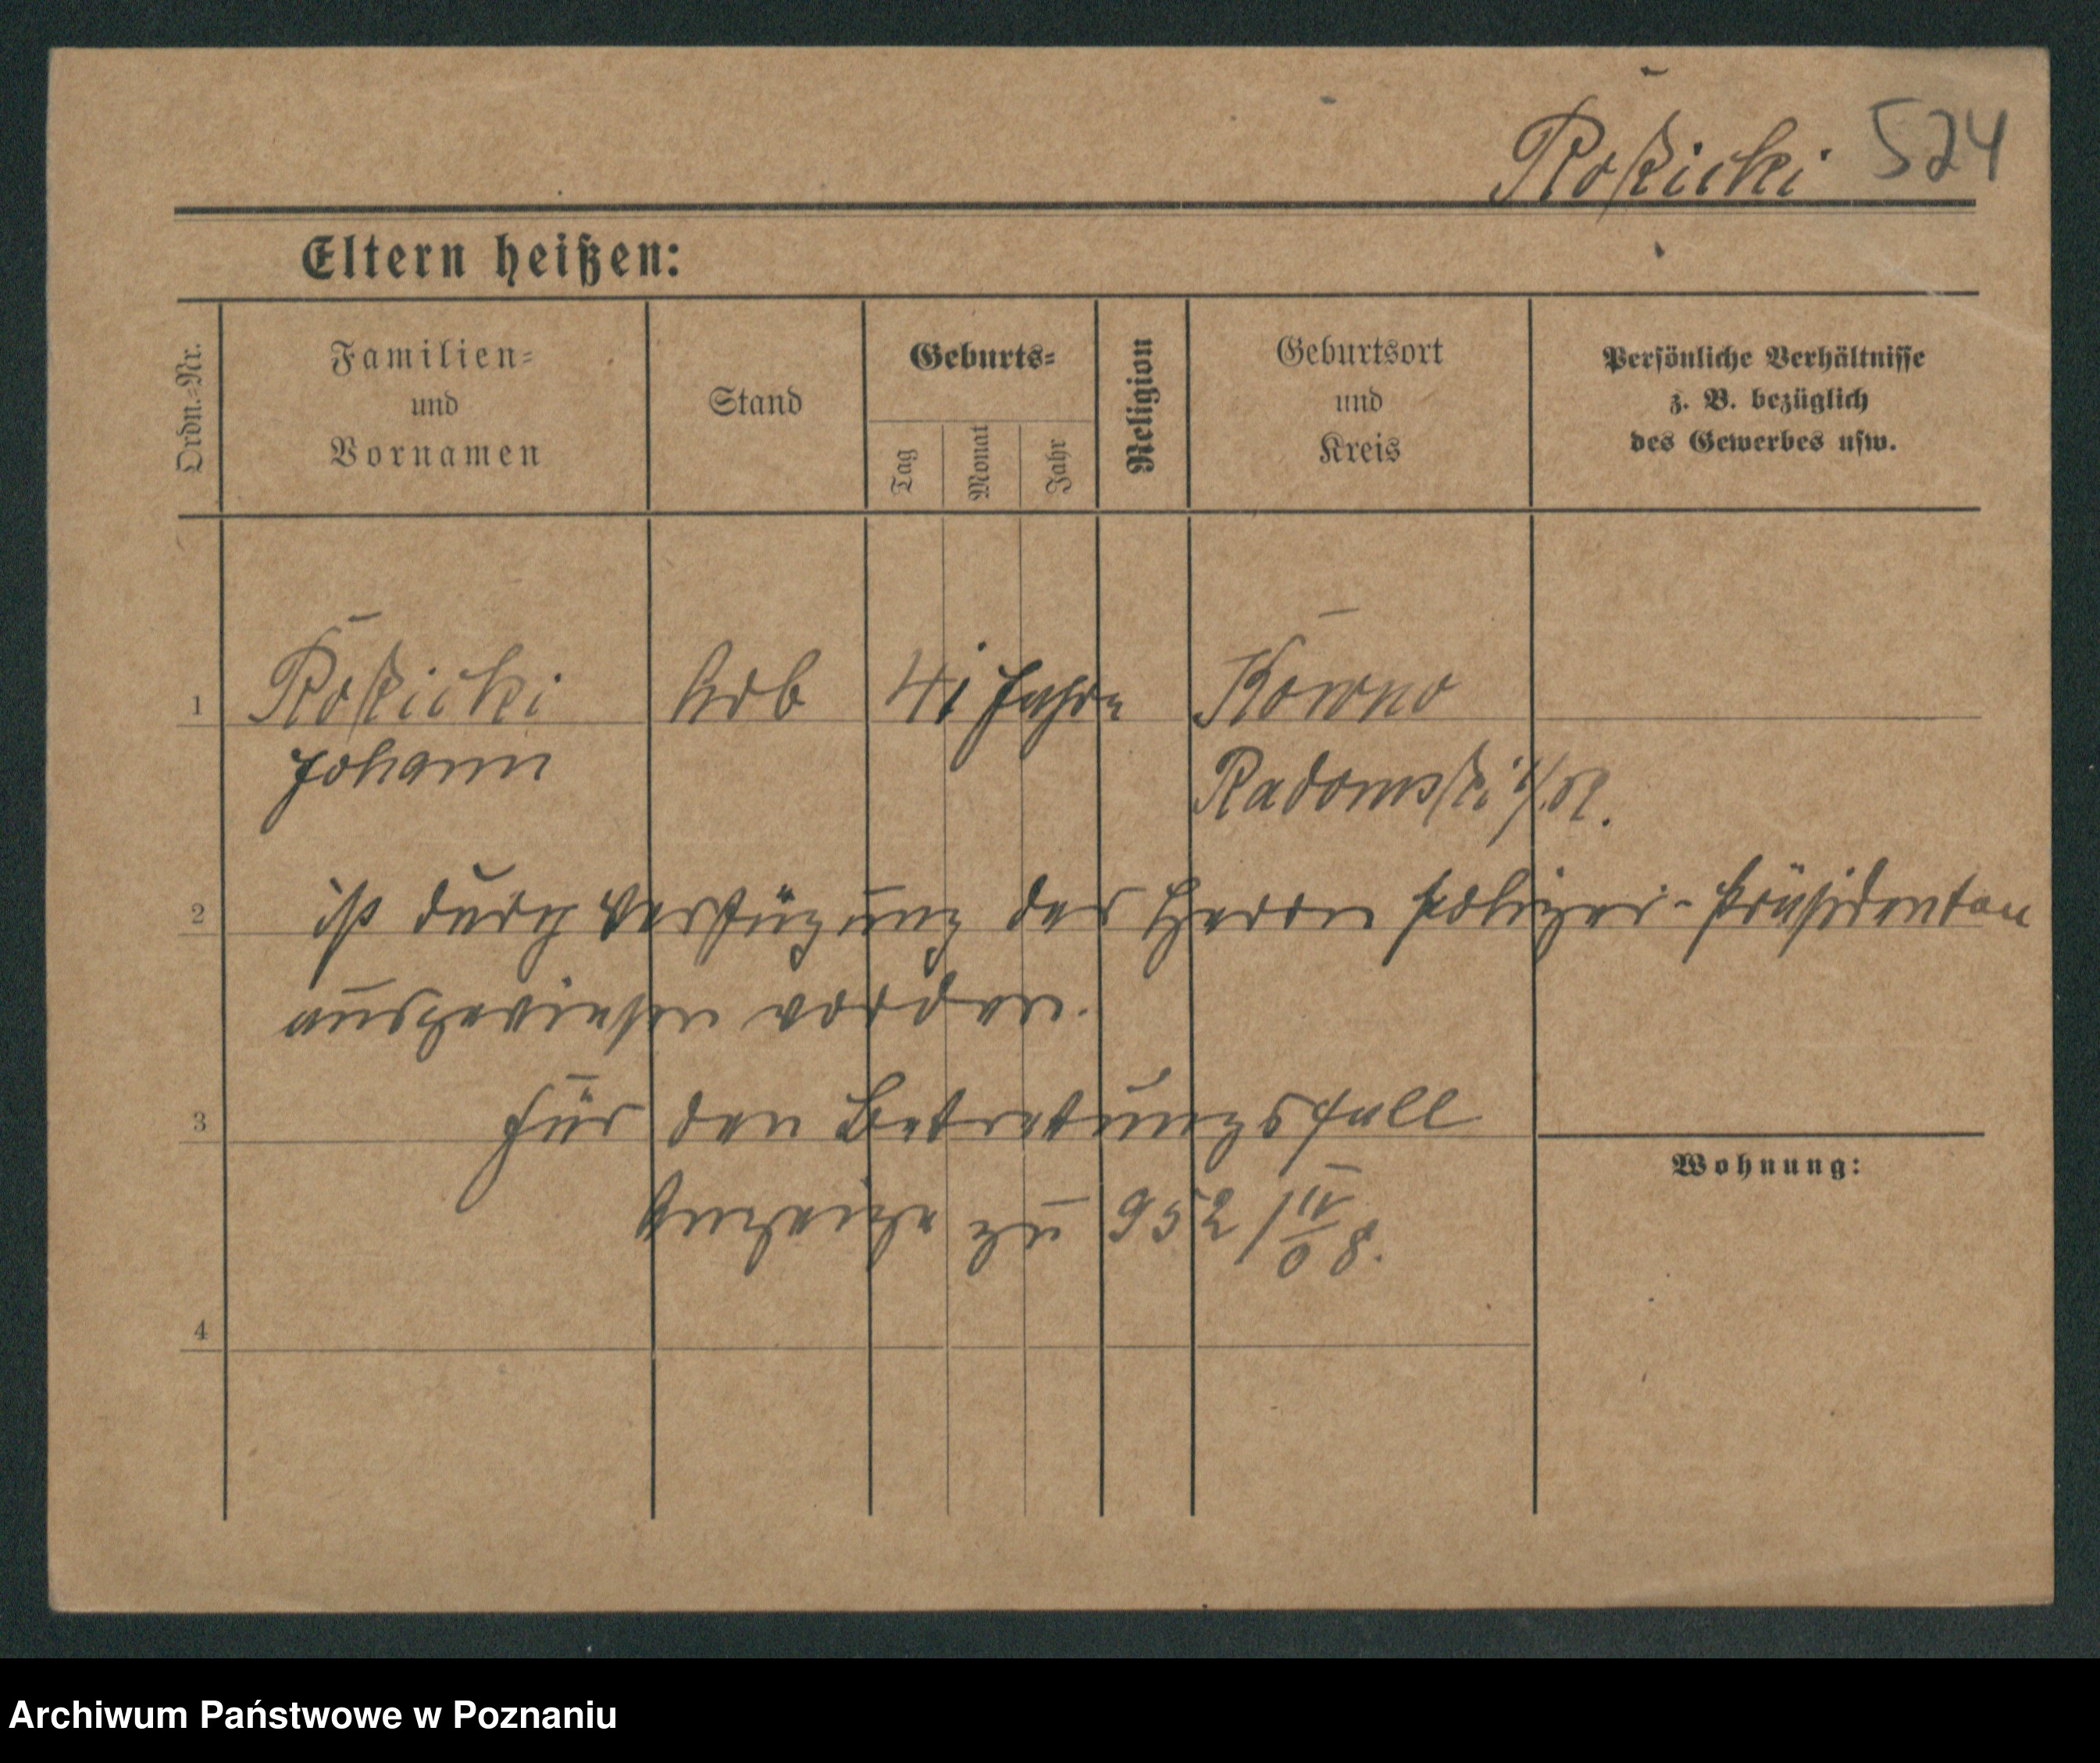 Roßicki 524
Eltern heißen:
Ordn.=Nr.
Familien=
und
Vornamen
Stand
Geburts=
Tag
Monat
Jahr
Religion
Geburtsort
und
Kreis
Persönliche Verhältnisse
z. B. bezüglich
des Gewerbes usw.
1 Roßicki Arb 41 Jahre Kowno
Johann Radomski
2 ist durch Verfügung des Herrn Polizei-Präsidenten
ausgewiesen worden.
3 Für den Betretungsfall
Wohnung:
Anzeige zu 952/II 08.
4
Archiwum Państwowe w Poznaniu